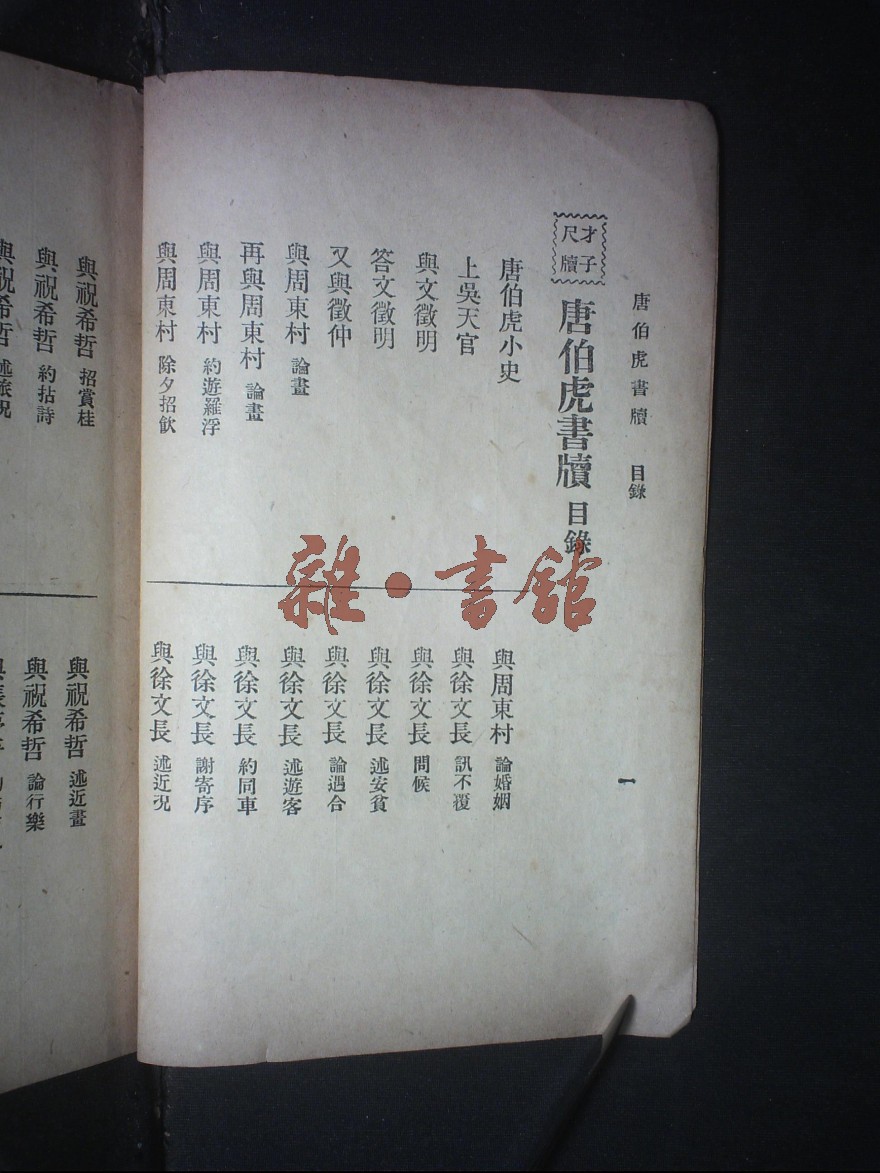 唐伯虎書牘 目錄
一
才子
尺牘
唐伯虎書牘 目錄
唐伯虎小史
上吳天官
與文徵明
答文徵明
又與徵仲
與周東村 論畫
再與周東村 論畫
與周東村 約遊羅浮
與周東村 除夕招飲
與周東村 論婚姻
與徐文長 訊不覆
與徐文長 問候
與徐文長 述安貧
與徐文長 論遇合
與徐文長 述遊客
與徐文長 約同車
與徐文長 謝寄序
與徐文長 述近況
與祝希哲 招賞桂
與祝希哲 約拈詩
與祝希哲 述旅況
與祝希哲 述近畫
與祝希哲 論行樂
雜·書館